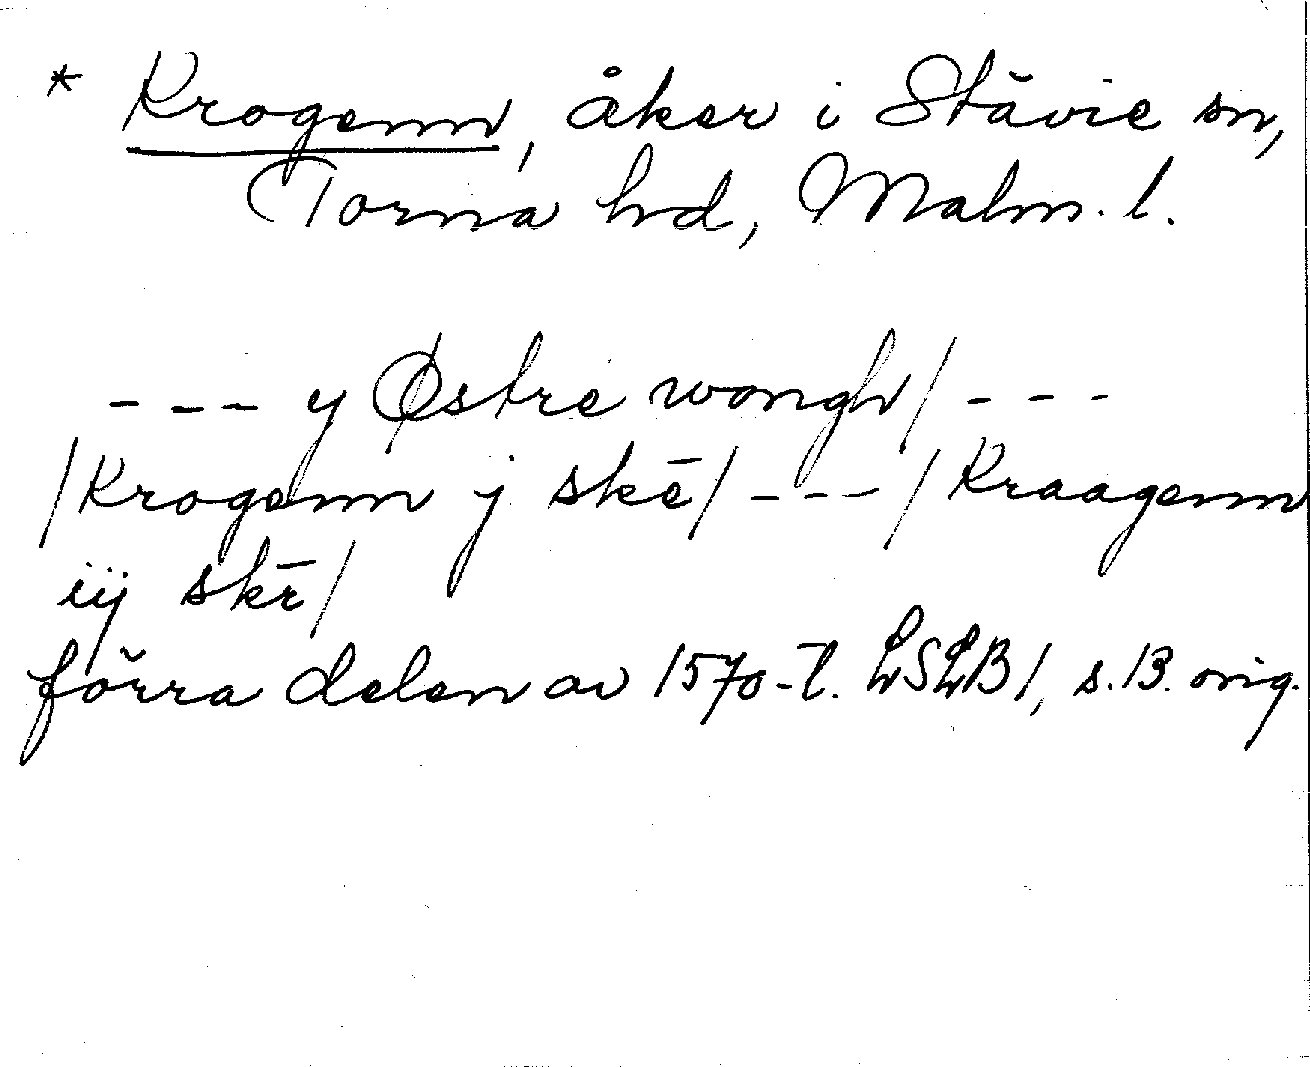 * Krogenn, åker i Stävie sn,
Torna hd, Malm. l.
--- y Østre wongh/ ---
/Krogenn j skē/ --- / Kraagenn
iij skē/
förra delen av 1570-t. LSLB 1, s. 13. orig.